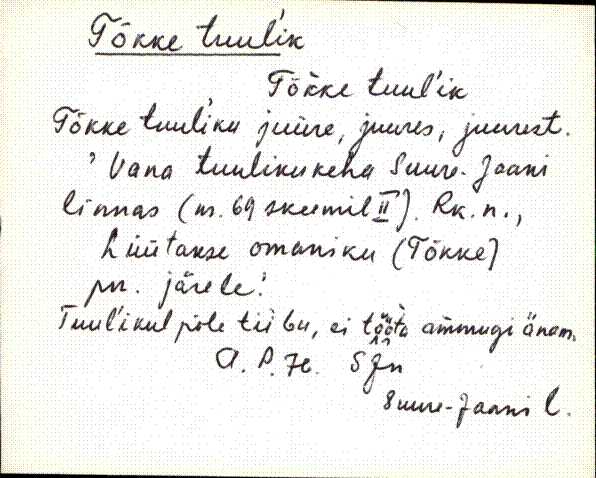 Tõkke tuul'ik
Tõkke tuul'ik
Tõkke tuul'iku juure, juures, juurest.
' Vana tuulikukeha Suure-Jaani
linnas (nr. 69 skeemil II). Rk. n.,
hüütakse omaniku (Tõkke)
pn. järele.'
Tuul'ikul põle tiibu, ei tööta ammugi änam.
A. P. SJn
Suure-Jaani l.